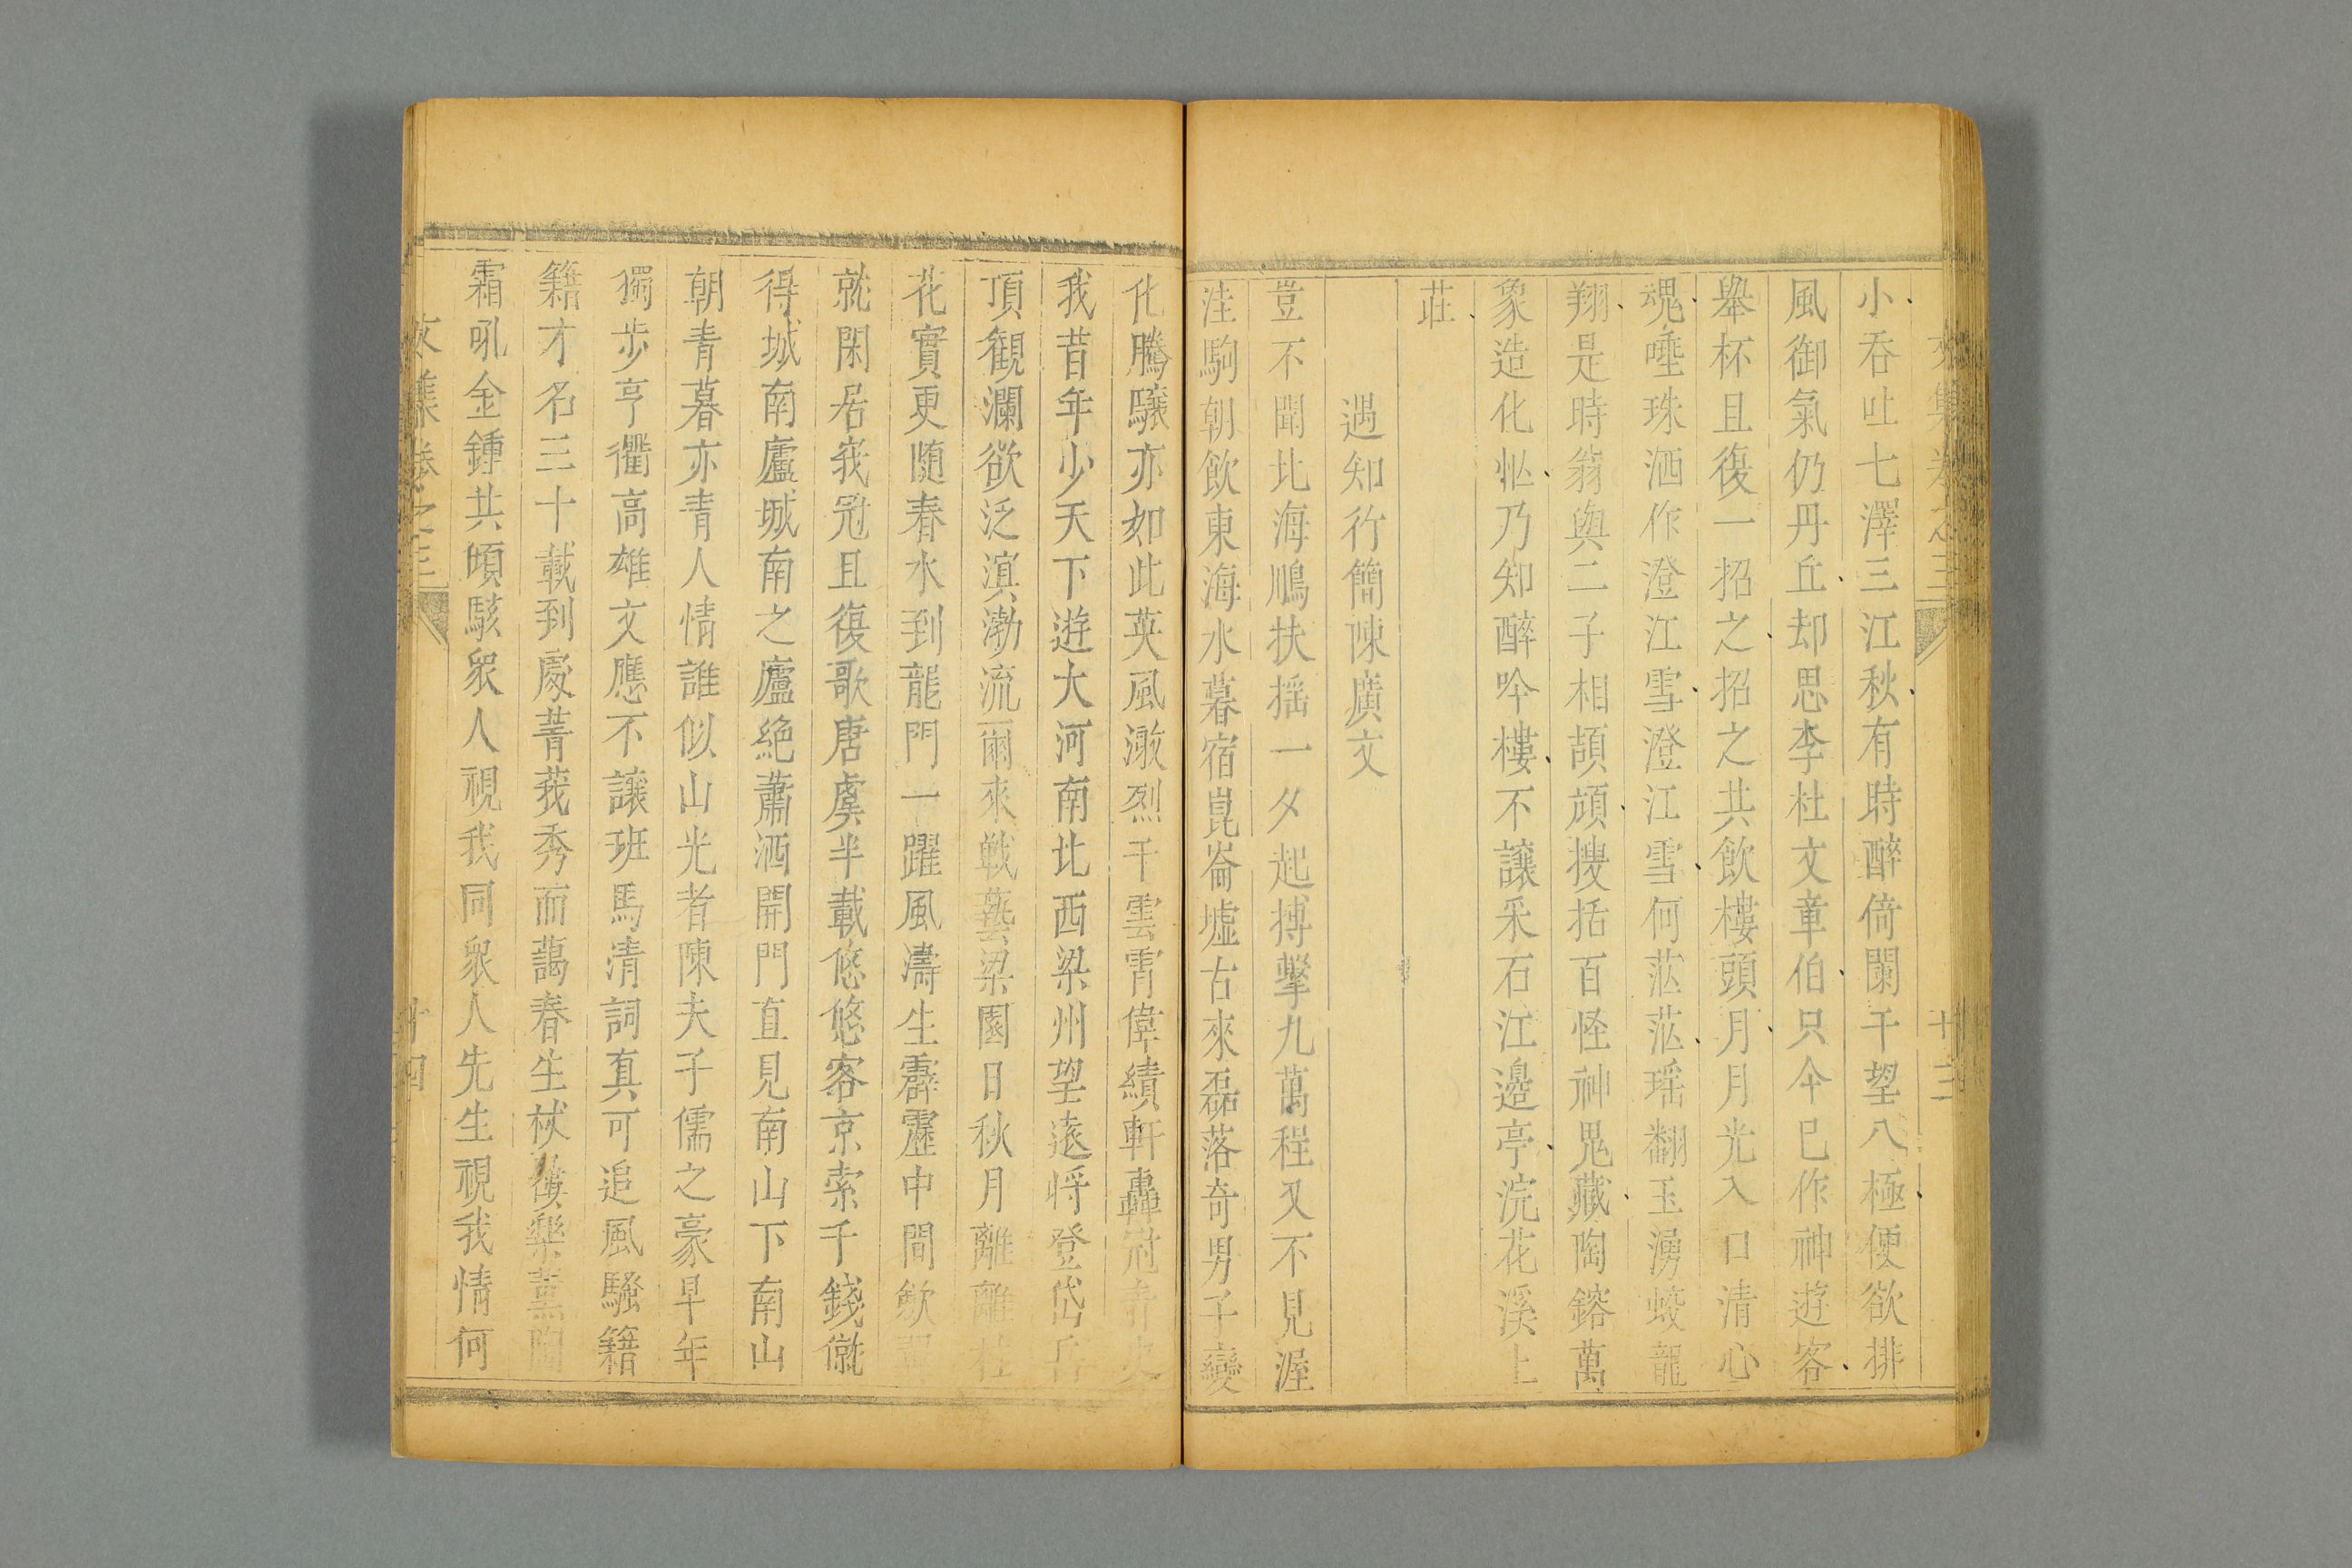 集卷之三 十三
小吞吐七澤三江秋有時醉倚闌干望八極便欲排
風御氣仍丹丘却思李杜文章伯只今巳作神遊客
舉杯且復一招之招之共飲樓頭月月光入口清心
魂唾珠洒作澄江雪澄江雪何茫茫瑶翻玉湧蛟龍
翔是時翁與二子相頡頏搜括百怪神鬼藏陶鎔萬
象造化忙乃知醉吟樓不讓采石江邉亭浣花溪上
莊
遇知行簡陳廣文
豈不聞北海鵰扶揺一夕起搏擊九萬程又不見渥
洼駒朝飲東海水暮宿崑崙墟古來磊落奇男子變
化騰驤亦如此英風激烈干雲霄偉績軒轟冠青史
我昔年少天下遊大河南北西梁州望遠将登岱岳
頂觀瀾欲泛溟渤流爾來戰藝梁園日秋月離離桂
花實更随春水到龍門一躍風濤生霹靂中間歛
就閑居峩冠且復歌唐虞半載悠悠客京索千錢僦
得城南廬城南之廬絶蕭洒開門直見南山下南山
朝青暮亦青人情誰似山光者陳夫子儒之豪早年
獨步亨衢高雄文應不讓班馬清詞真可追風騷籍
籍才名三十載到處菁莪秀而藹春生棫樸樂薰陶
霜吼金鍾共傾駭衆人視我同衆人先生視我情何
文集卷之三 十四